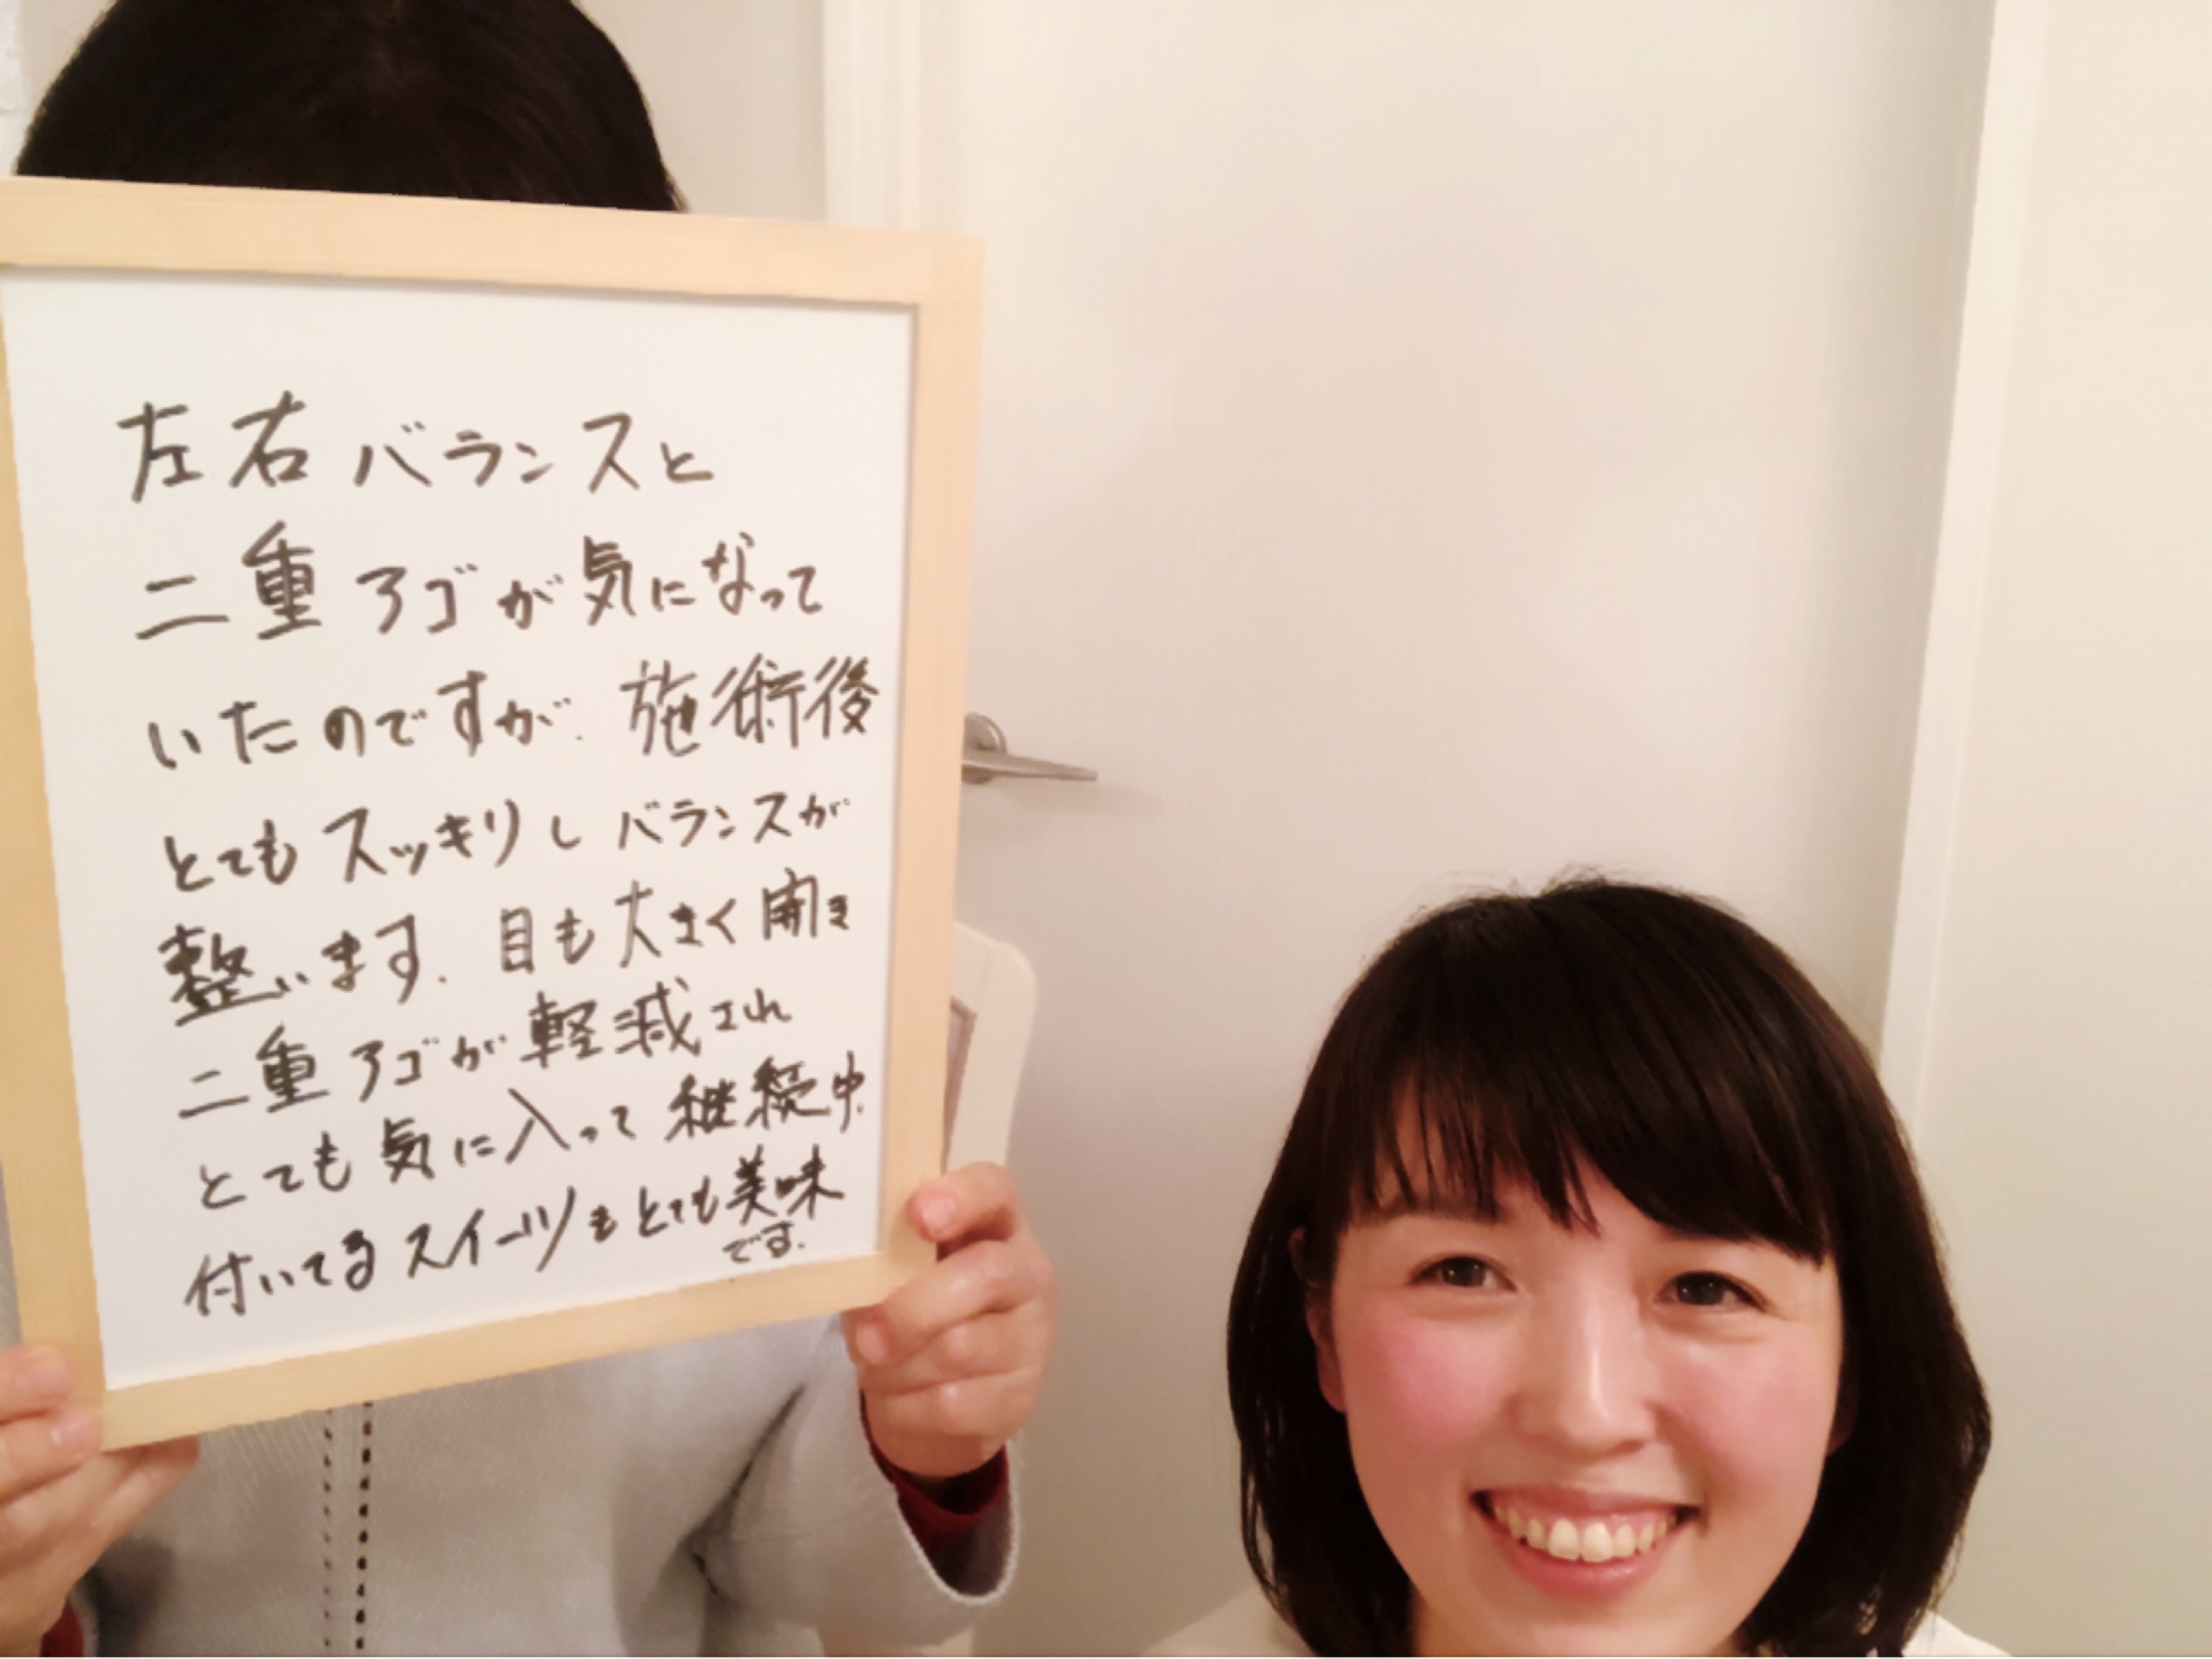 左右バランスと
二重アゴが気になって
いたのですが、施術後
とてもスッキリしバランスが
整います。目も大きく開き
二重アゴが軽減され
とても気に入って継続中。
付いてるスイーツもとても美味
です。